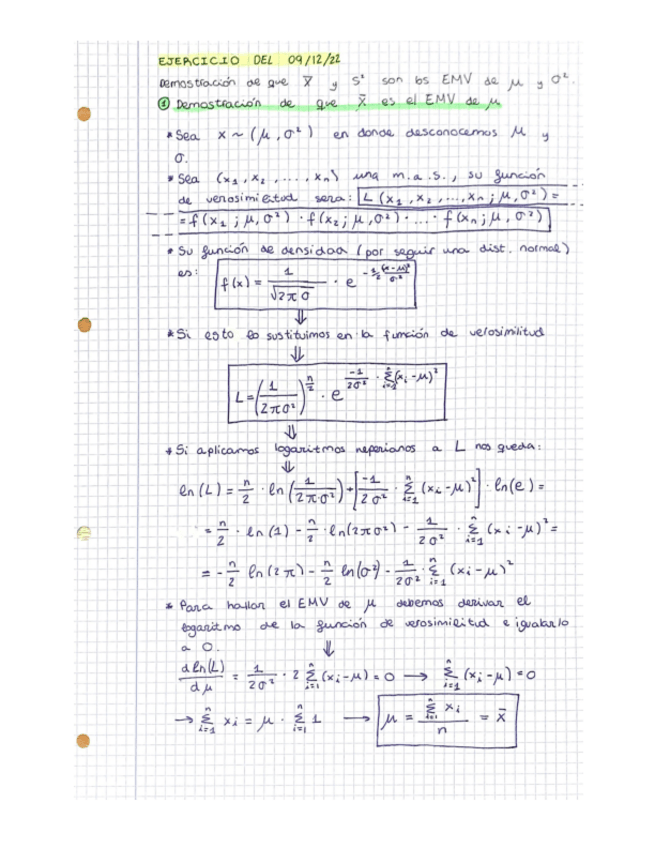 EJERCICIO DEL 09/12/22
Demostración de que X̄ y S² son los EMV de μ y σ².
① Demostración de que X̄ es el EMV de μ
* Sea x ~ (μ, σ²) en donde desconocemos μ y
σ.
* Sea (x₁, x₂, ..., xₙ) una m.a.s., su función
de verosimilitud sera: L (x₁, x₂, ..., xₙ; μ, σ²) =
= f(x₁; μ, σ²) · f(x₂; μ, σ²) · ... · f(xₙ; μ, σ²)
* Su función de densidad (por seguir una dist. normal)
es: f(x) = 1/√(2πσ) · e^(-1/2 (x-μ)²/σ²)
⇓
* Si esto lo sustituimos en la función de verosimilitud
⇓
L = (1/(2πσ²))^(n/2) · e^(-1/(2σ²) · Σⁿᵢ₌₁(xᵢ-μ)²)
⇓
* Si aplicamos logaritmos neperianos a L nos queda:
⇓
ln(L) = n/2 · ln(1/(2πσ²)) + [-1/(2σ²) · Σⁿᵢ₌₁ (xᵢ-μ)²] · ln(e) =
= n/2 · ln(1) - n/2 · ln(2πσ²) - 1/(2σ²) · Σⁿᵢ₌₁ (xᵢ-μ)² =
= - n/2 ln(2π) - n/2 ln(σ²) - 1/(2σ²) · Σⁿᵢ₌₁ (xᵢ-μ)²
* Para hallar el EMV de μ debemos derivar el
logaritmo de la función de verosimilitud e igualarlo
a 0. ⇓
d ln(L)/dμ = 1/(2σ²) · 2 Σⁿᵢ₌₁ (xᵢ-μ) = 0 → Σⁿᵢ₌₁ (xᵢ-μ) = 0
→ Σⁿᵢ₌₁ xᵢ = μ · Σⁿᵢ₌₁ 1 → μ = Σⁿᵢ₌₁ xᵢ / n = x̄